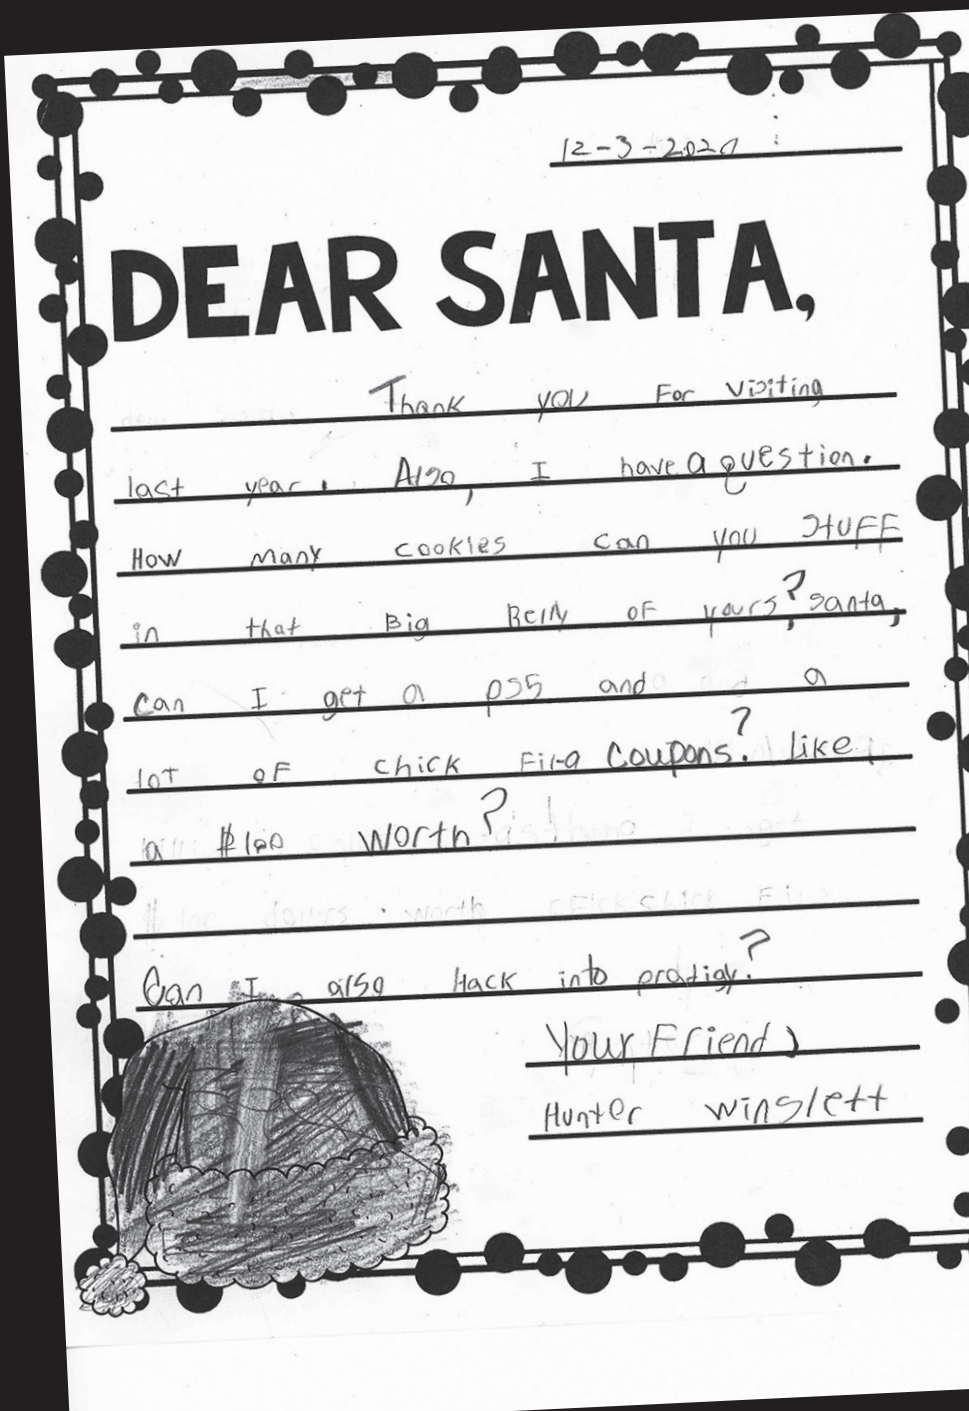 12-3-2020
DEAR SANTA,
Thank you For visiting
last year. Also, I have a question.
How many cookies can you stuff
in that Big Belly of yours? Santa,
can I get a ps5 and a
lot of chick Fil-a Coupons? Like
a $100 worth?
Can I also Hack into prodigy?
Your Friend,
Hunter Winslett